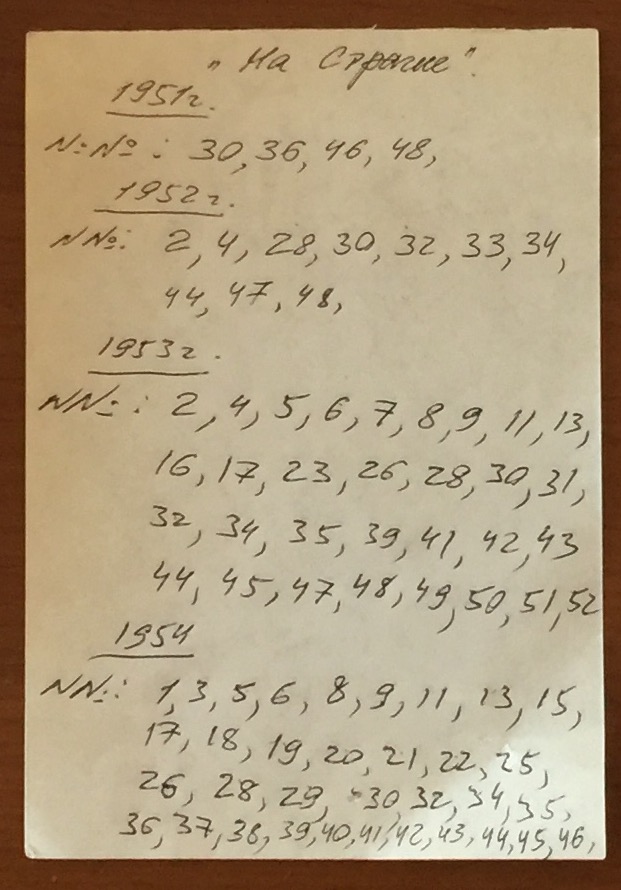 "На Страже".
1951г.
№№: 30, 36, 46, 48,
1952г.
N№: 2, 4, 28, 30, 32, 33, 34,
44, 47, 48,
1953г.
N№: 2, 4, 5, 6, 7, 8, 9, 11, 13,
16, 17, 23, 26, 28, 30, 31,
32, 34, 35, 39, 41, 42, 43
44, 45, 47, 48, 49, 50, 51, 52
1954
N№: 1, 3, 5, 6, 8, 9, 11, 13, 15,
17, 18, 19, 20, 21, 22, 25,
26, 28, 29, 30, 32, 34, 35,
36, 37, 38, 39, 40, 41, 42, 43, 44, 45, 46,